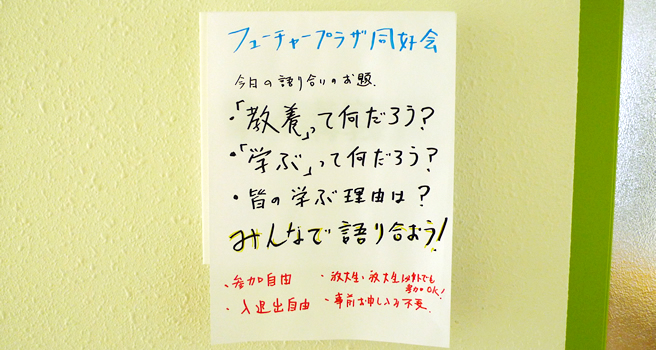 フューチャープラザ同好会
今日の語り合いのお題
・「教養」って何だろう?
・「学ぶ」って何だろう?
・皆の学ぶ理由は?
みんなで語り合おう!
・参加自由
・入退出自由
・放大生、放大生以外でも
参加OK!
・事前お申し込み不要